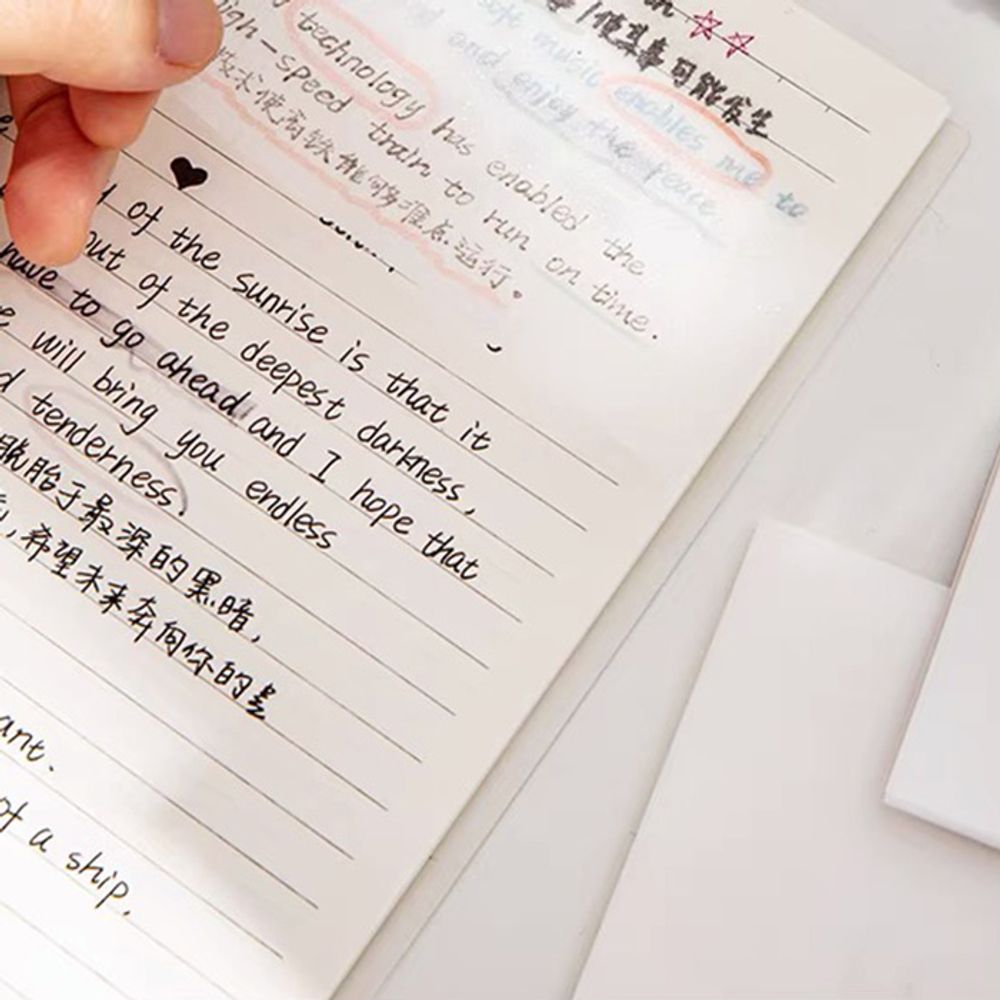 使某事可能发生
soft music enables me to
and enjoy the peace.
technology has enabled the
high-speed train to run on time.
技术使高铁能够准点运行。
of the sunrise is that it
out of the deepest darkness,
have to go ahead and I hope that
will bring you endless
tenderness.
脱胎于最深的黑暗,
,希望未来奔向你的是
ant.
of a ship.